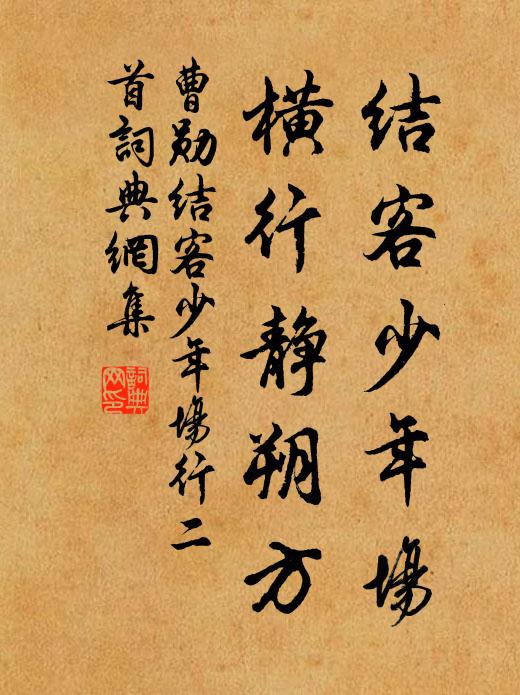 结客少年場
橫行静朔方
曹勋结客少年場行二
首詞典網集
詞典
网印